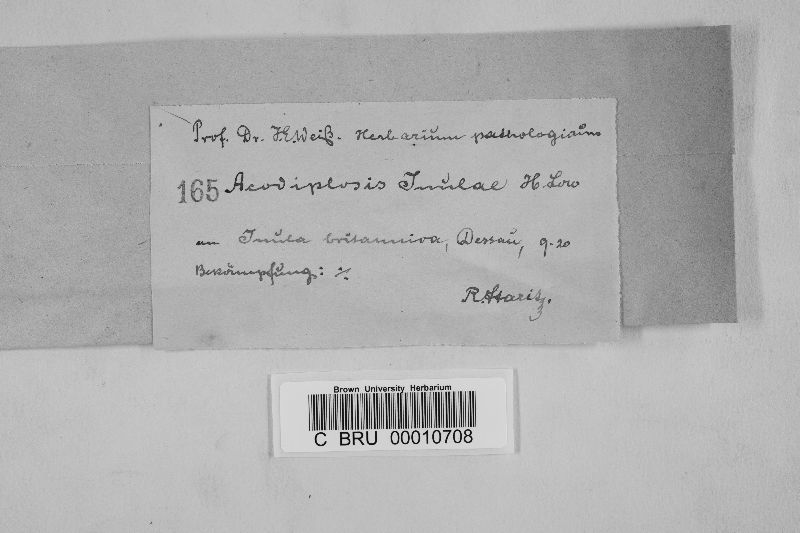 Prof. Dr. H.E.Weiß. Herbarium pathologicum
165 Acodiplosis Inulae H. Löw
an Inula britannica, Dessau, 9.20
Bekämpfung: ./.
R. Staritz.
Brown University Herbarium
C BRU 00010708